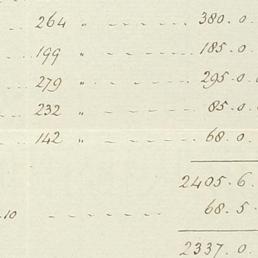 264 " 380.0.
199 " 185.0.
279 " 295.0.
232 " 85.0.
142 " 68.0.
2405.6.
.10 68.5.
2337.0.